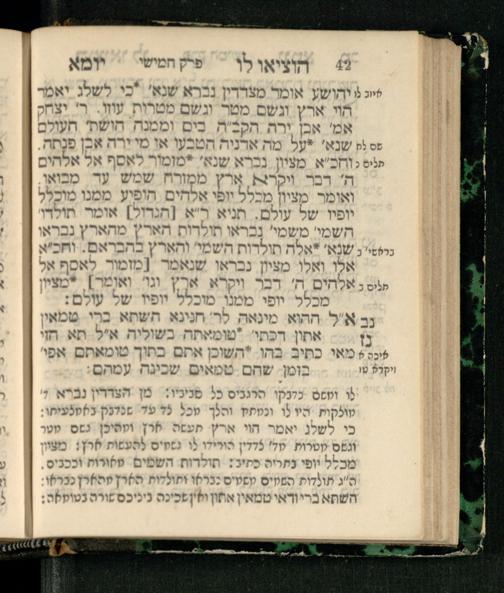 42 הוציאו לו פרק חמישי יומא
איוב לז יהושע אומר מצדדין נברא שנא' *כי לשלג יאמר
הוי ארץ וגשם מטר וגשם מטרות עוזו. ר' יצחק
אמ' אבן ירה הקב"ה בים וממנה הושת' העולם
שם לח שנא' *על מה אדניה הטבעו או מי ירה אבן פנתה.
תלים נ וחכ"א מציון נברא שנא' *מזמור לאסף אל אלהים
ה' דבר ויקרא ארץ ממזרח שמש עד מבואו.
ואומר מציון מכלל יופי אלהים הופיע ממנו מוכלל
יופיו של עולם. תניא ר"א [הגדול] אומר תולדו'
השמי' משמי' נבראו תולדות הארץ מהארץ נבראו
בראשי' ב שנא' *אלה תולדות השמי' והארץ בהבראם. וחכ"א
אלו ואלו מציון נבראו שנאמר [מזמור לאסף אל
תלים נ אלהים ה' דבר ויקרא ארץ וגו' ואומר] *מציון
מכלל יופי ממנו מוכלל יופיו של עולם:
נב א"ל ההוא מינאה לר' חנינא השתא ברי טמאין
נז אתון דכתי' *טומאתה בשוליה א"ל תא חזי
איכה א מאי כתיב בהו *השוכן אתם בתוך טומאתם אפי'
ויקרא טז בזמן שהם טמאים שכינה עמהם:
לו ומשם נדבקו הרגבים כל סביביו: מן הצדדין נברא ד'
כי לשלג יאמר הוי ארץ תעשה ארץ ומהיכן גשם מטר
וגשם מטרות מד' צדדין הורידו לו גשמים להעשות ארץ: מציון
מכלל יופי בתריה כתיב: תולדות השמים מאורות וכוכבים.
ה"ג תולדות השמים משמים נבראו ותולדות הארץ מהארץ נבראו:
השתא ברי ודאי טמאין אתון ואין שכינה ביניכם שורה בטומאה: